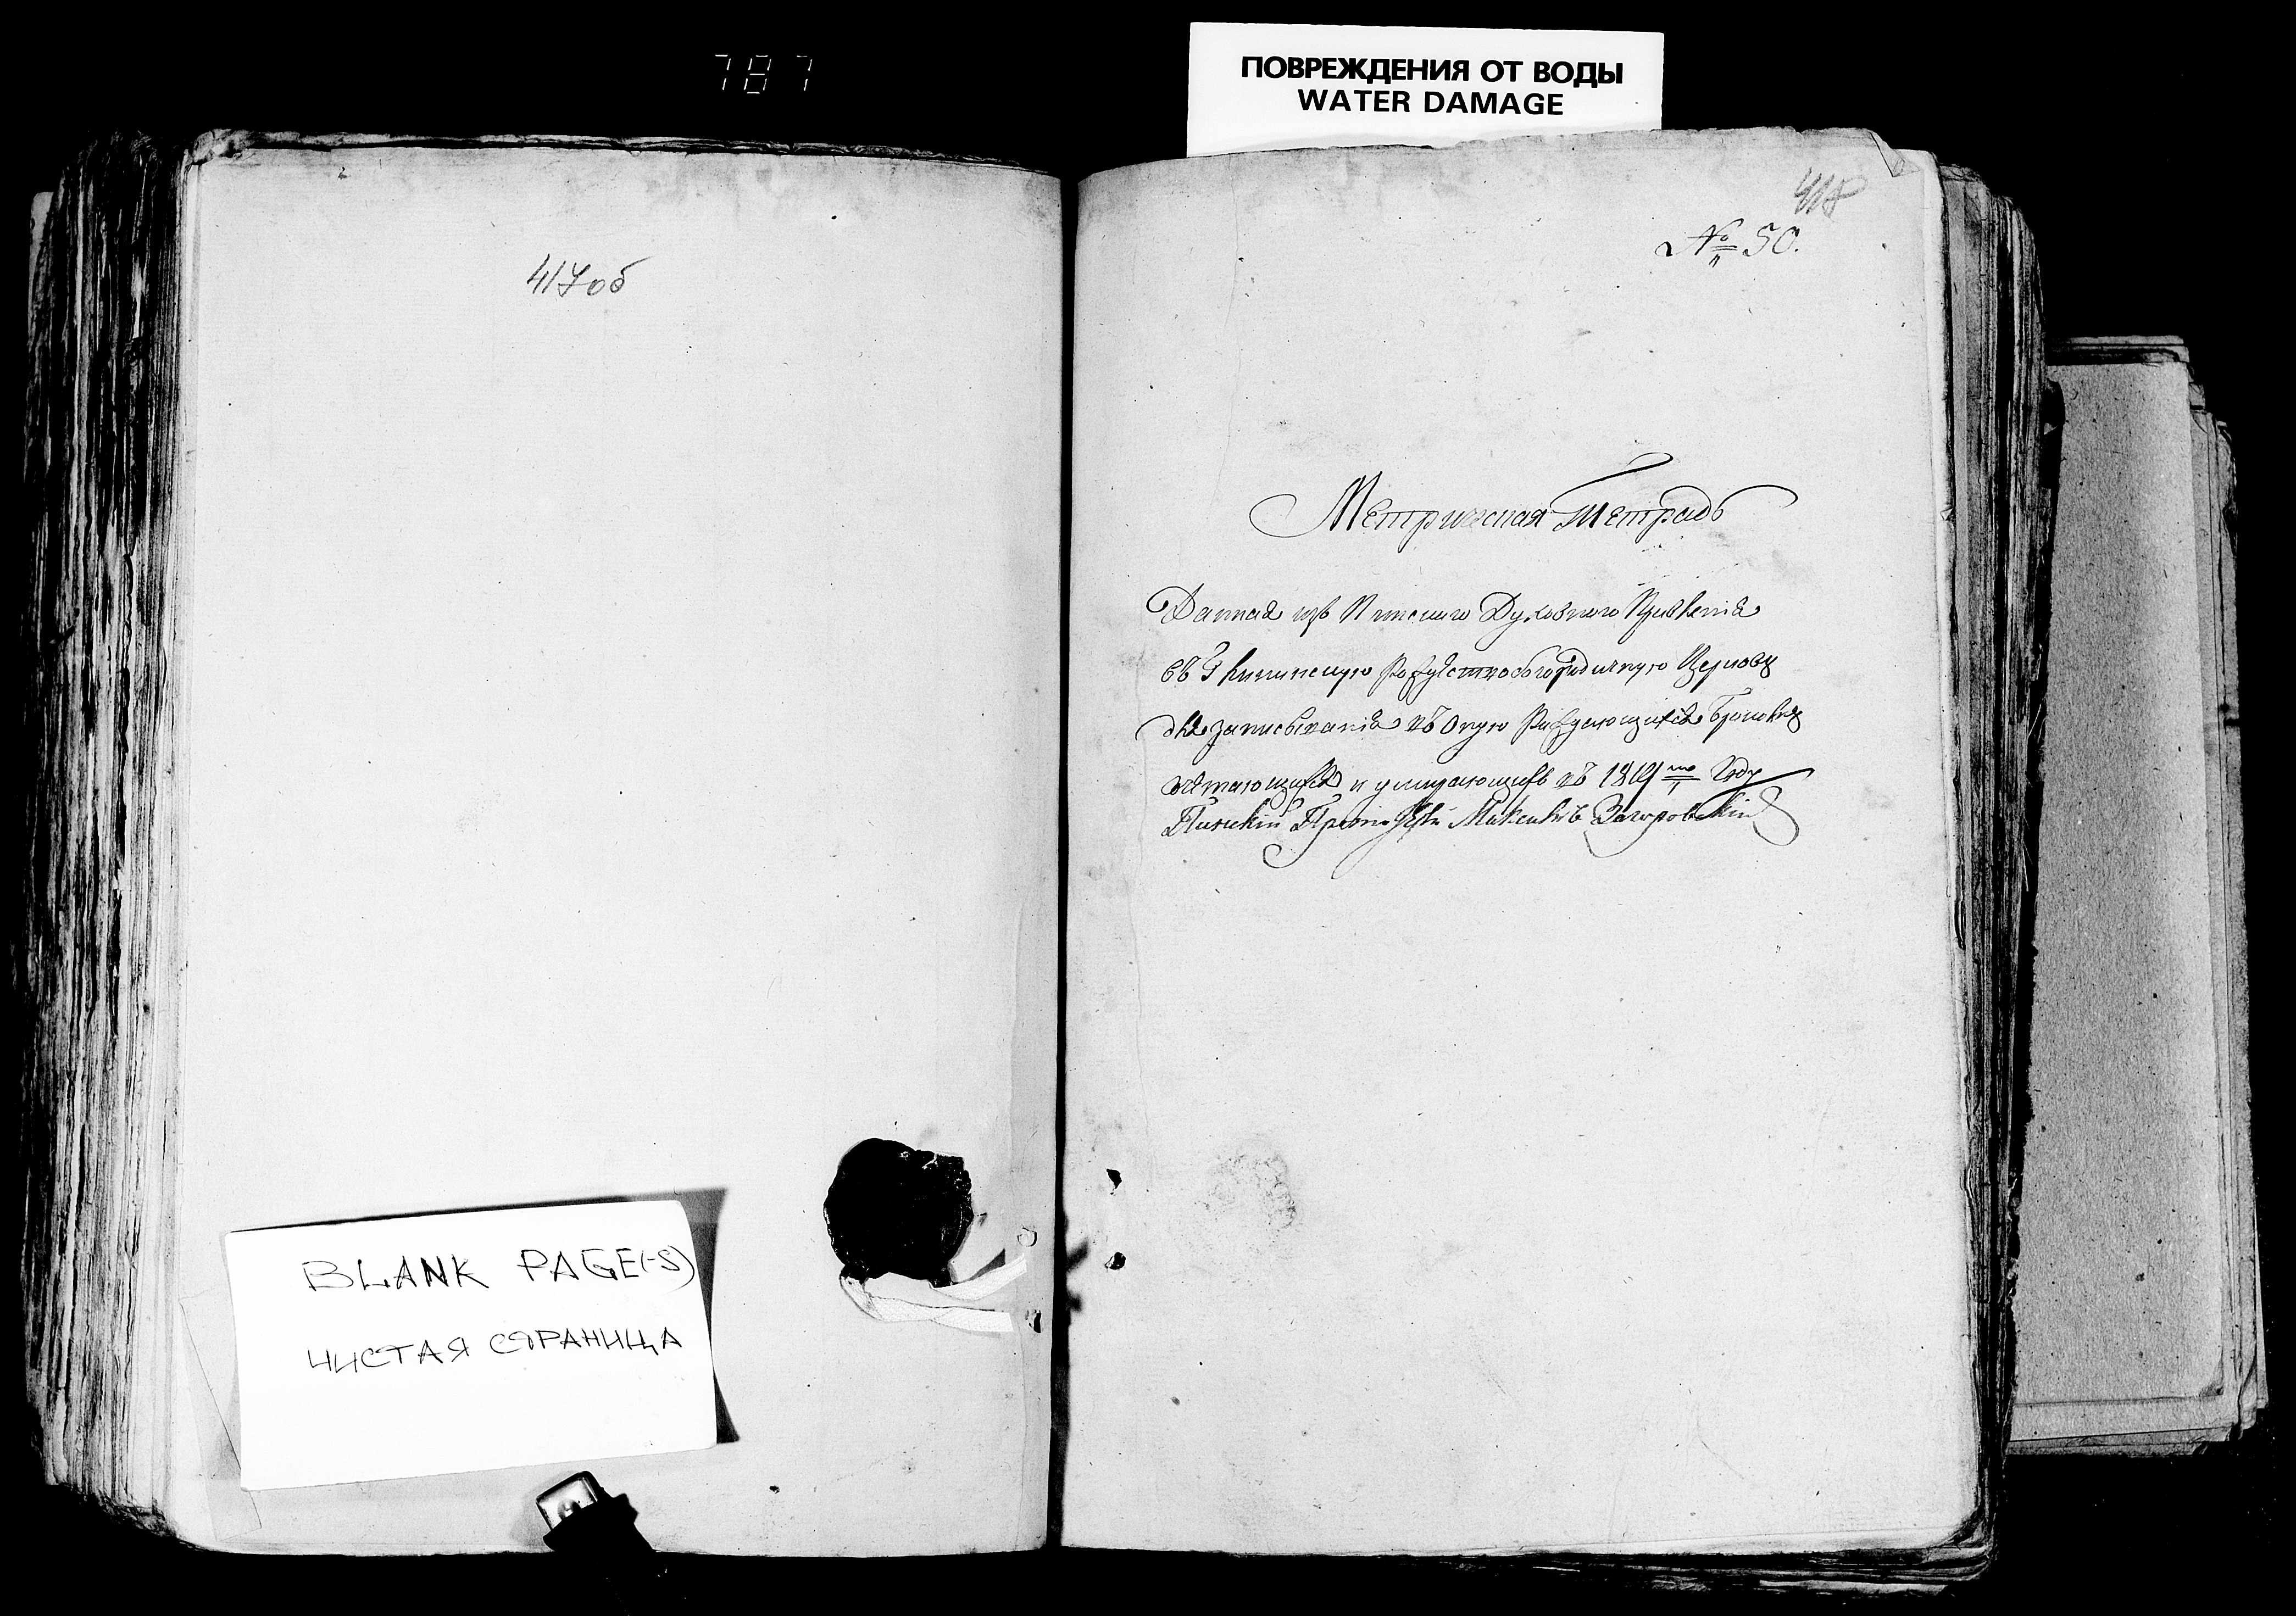 787
ПОВРЕЖДЕНИЯ ОТ ВОДЫ
WATER DAMAGE
417об
418
№ 50.
Метрическая Тетрадь
Данная изъ Пинскаго Духовнаго Правленія
въ Рождествобогородичную Церковь
для записыванія въ оную Раждающихся Броковъ
чѣтающихся и умирающихъ въ 1819мъ Году
Пинскій Максимъ Загоровскій
BLANK PAGE(-S)
ЧИСТАЯ СТРАНИЦА